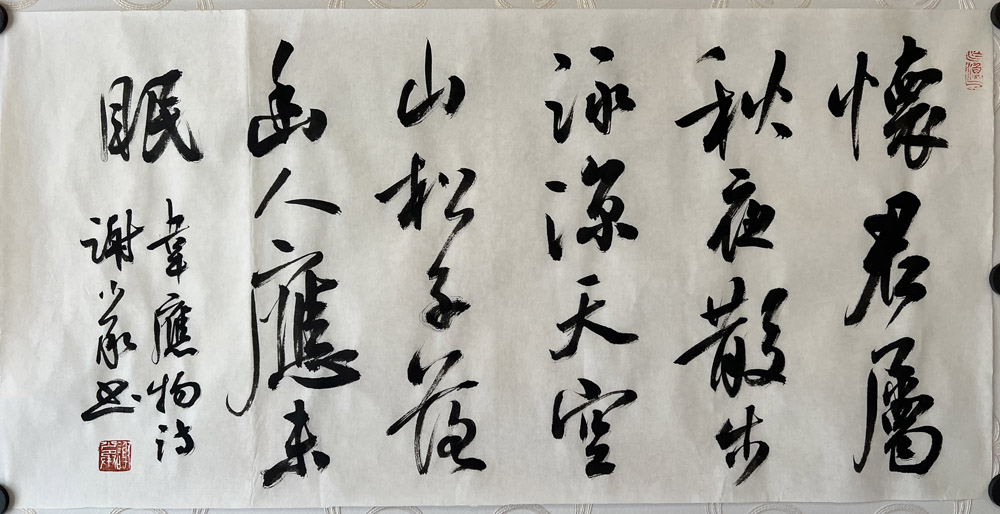 懷君屬
秋夜散步
詠涼天空
山松子落
幽人應未
眠
韋應物詩
謝少承书